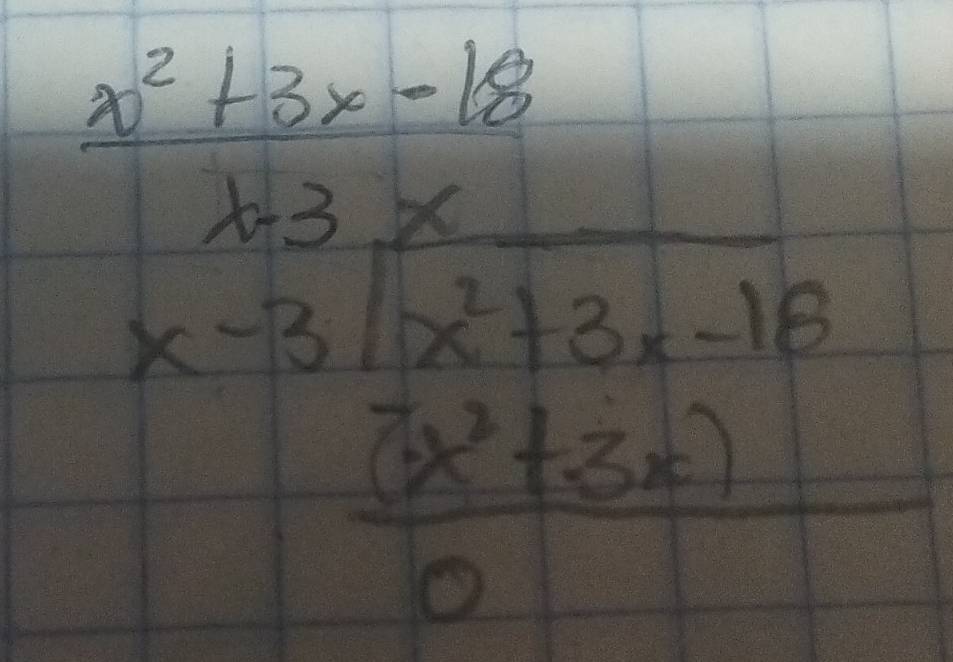 x² + 3x - 18
x-3 x
x - 3 | x² + 3x - 18
(-x² + 3x)
0